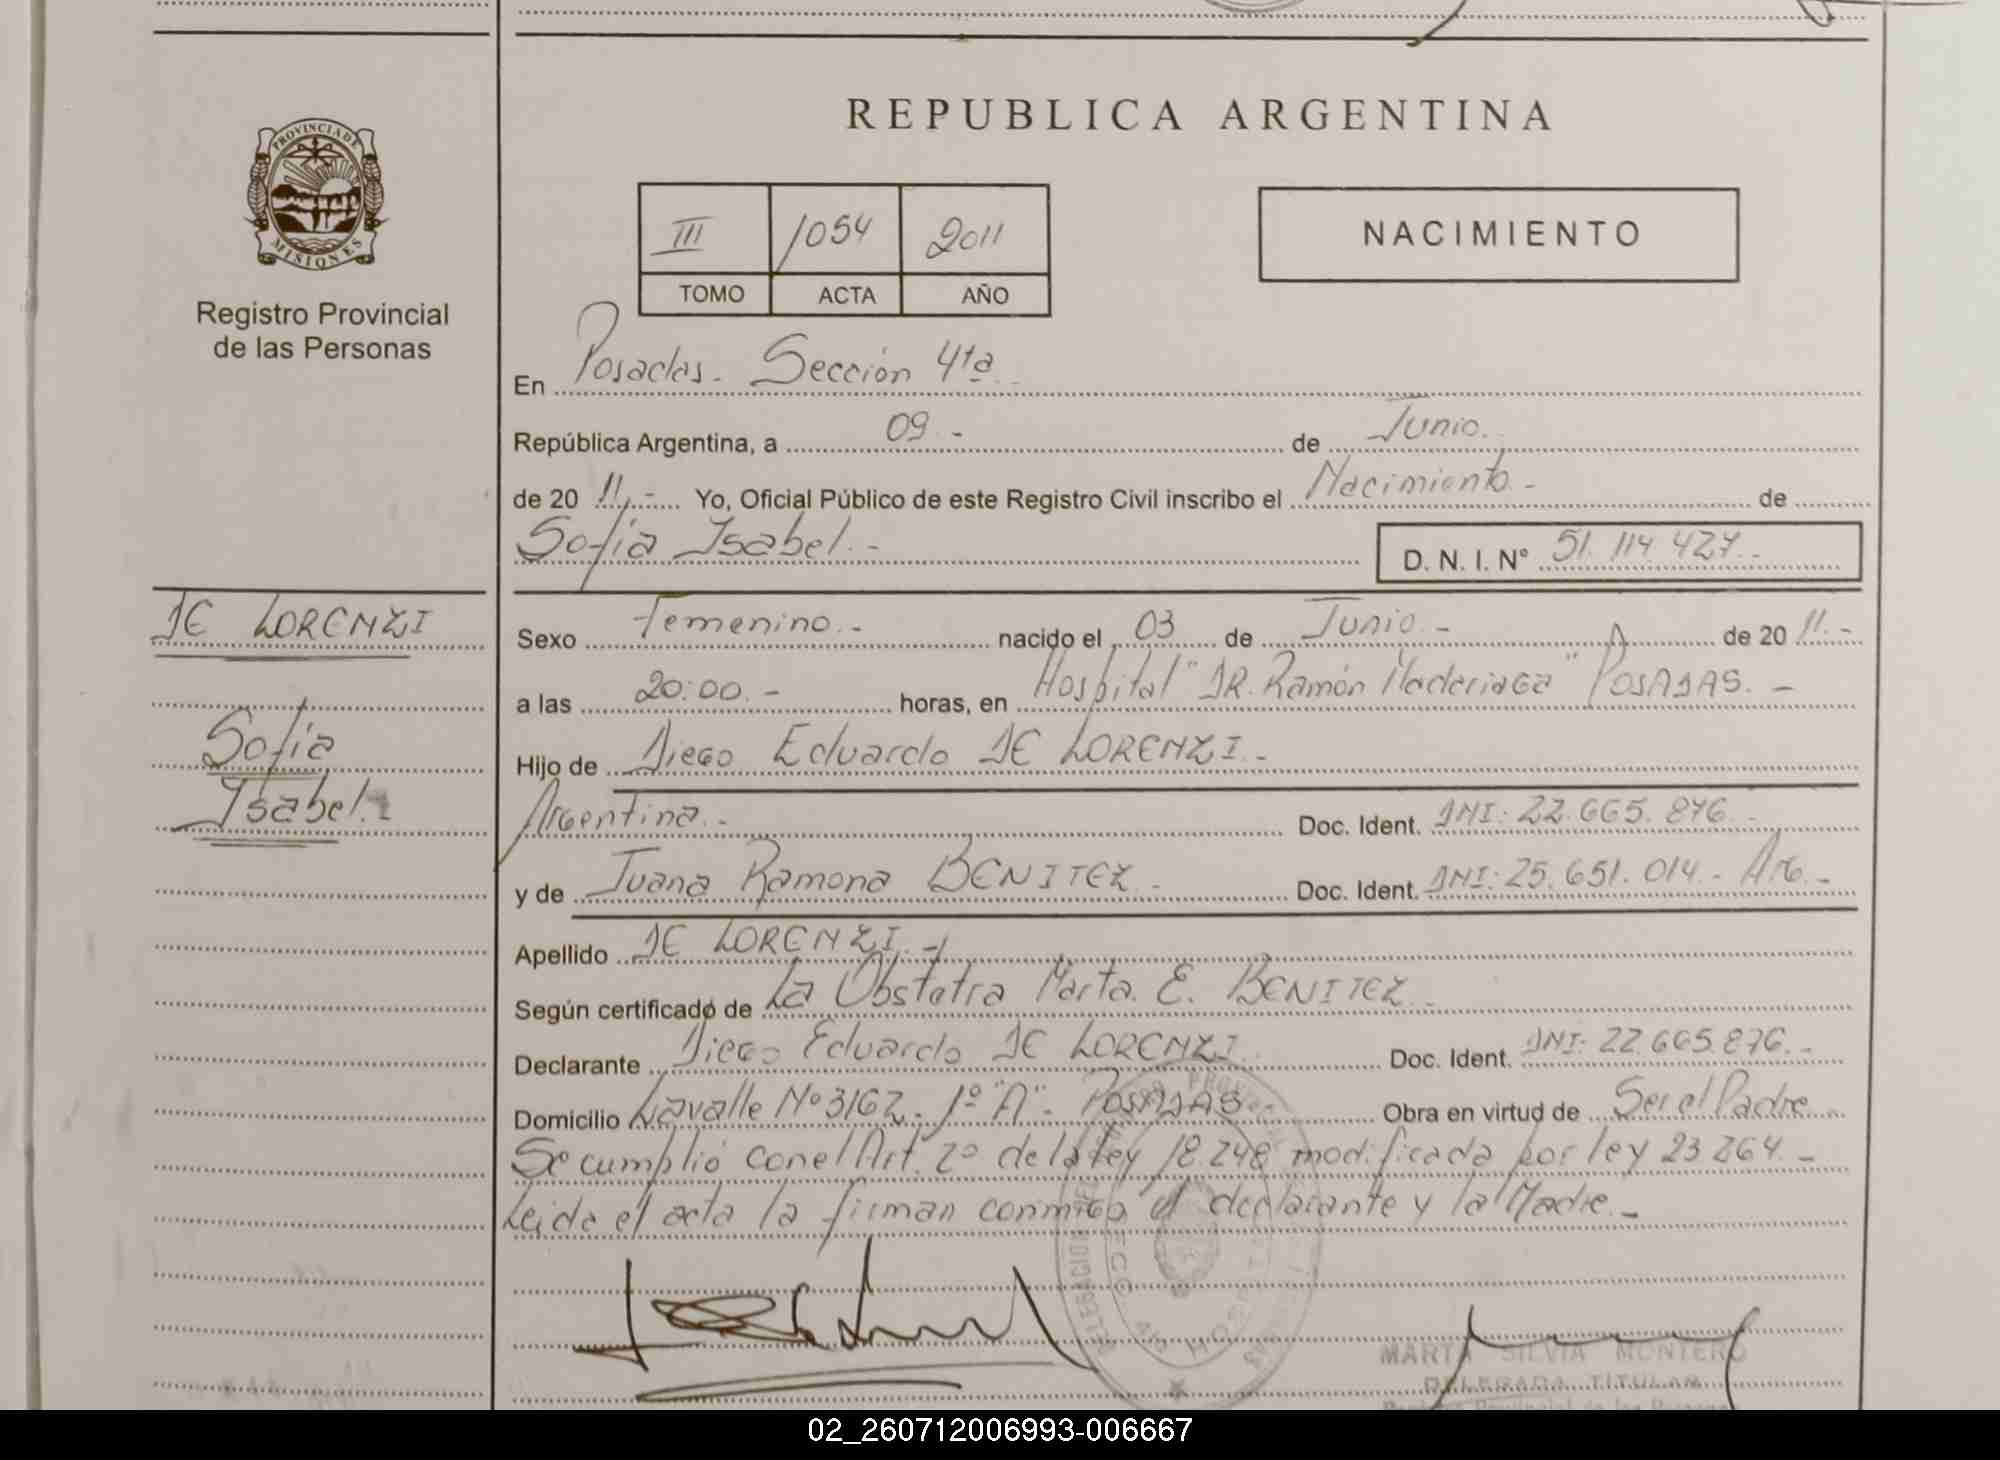 REPUBLICA ARGENTINA
PROVINCIA DE
MISIONES
Registro Provincial
de las Personas
III 1054 2011
TOMO ACTA AÑO
NACIMIENTO
En Posadas.- Sección 4ta.-
República Argentina, a 09.- de Junio.-
de 20 11.- Yo, Oficial Público de este Registro Civil inscribo el Nacimiento.- de
Sofía Isabel.- D. N. I. N° 51.114.427.-
DE LORENZI
Sofía
Isabel.-
Sexo Femenino.- nacido el 03 de Junio.- de 20 11.-
a las 20:00.- horas, en Hospital "DR. Ramón Madariaga" POSADAS.-
Hijo de Diego Eduardo DE LORENZI.-
Argentina.- Doc. Ident. DNI: 22.665.876.-
y de Juana Ramona BENITEZ.- Doc. Ident. DNI: 25.651.014.- Arg.-
Apellido DE LORENZI.-
Según certificado de La Obstetra Marta. E. BENITEZ.-
Declarante Diego Eduardo DE LORENZI Doc. Ident. DNI: 22.665.876.-
Domicilio Lavalle N° 3162.- 1° "A".- POSADAS Obra en virtud de Ser el Padre
Se cumplió con el Art. 2° de la ley 18.248 modificada por ley 23264.-
Leida el acta la firman conmigo el declarante y la Madre.-
MARTA SILVIA MONTERO
DELEGADA TITULAR
02_260712006993-006667